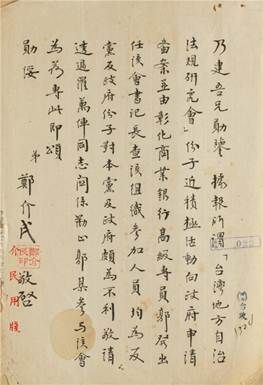 乃建吾兄勛鑒　據報所謂「台灣地方自治
法規研究會」份子近積極活動向政府申請
備案並由彰化商業銀行高級專員郭發出
任該會書記長查該組織參加人員均為反
黨反政府份子對本黨及政府頗為不利敬請
透過羅萬俥同志關係勸止郭某參与該會
為荷專此即頌
勛綏
弟 鄭介民 敬啓
鄭介民用牋